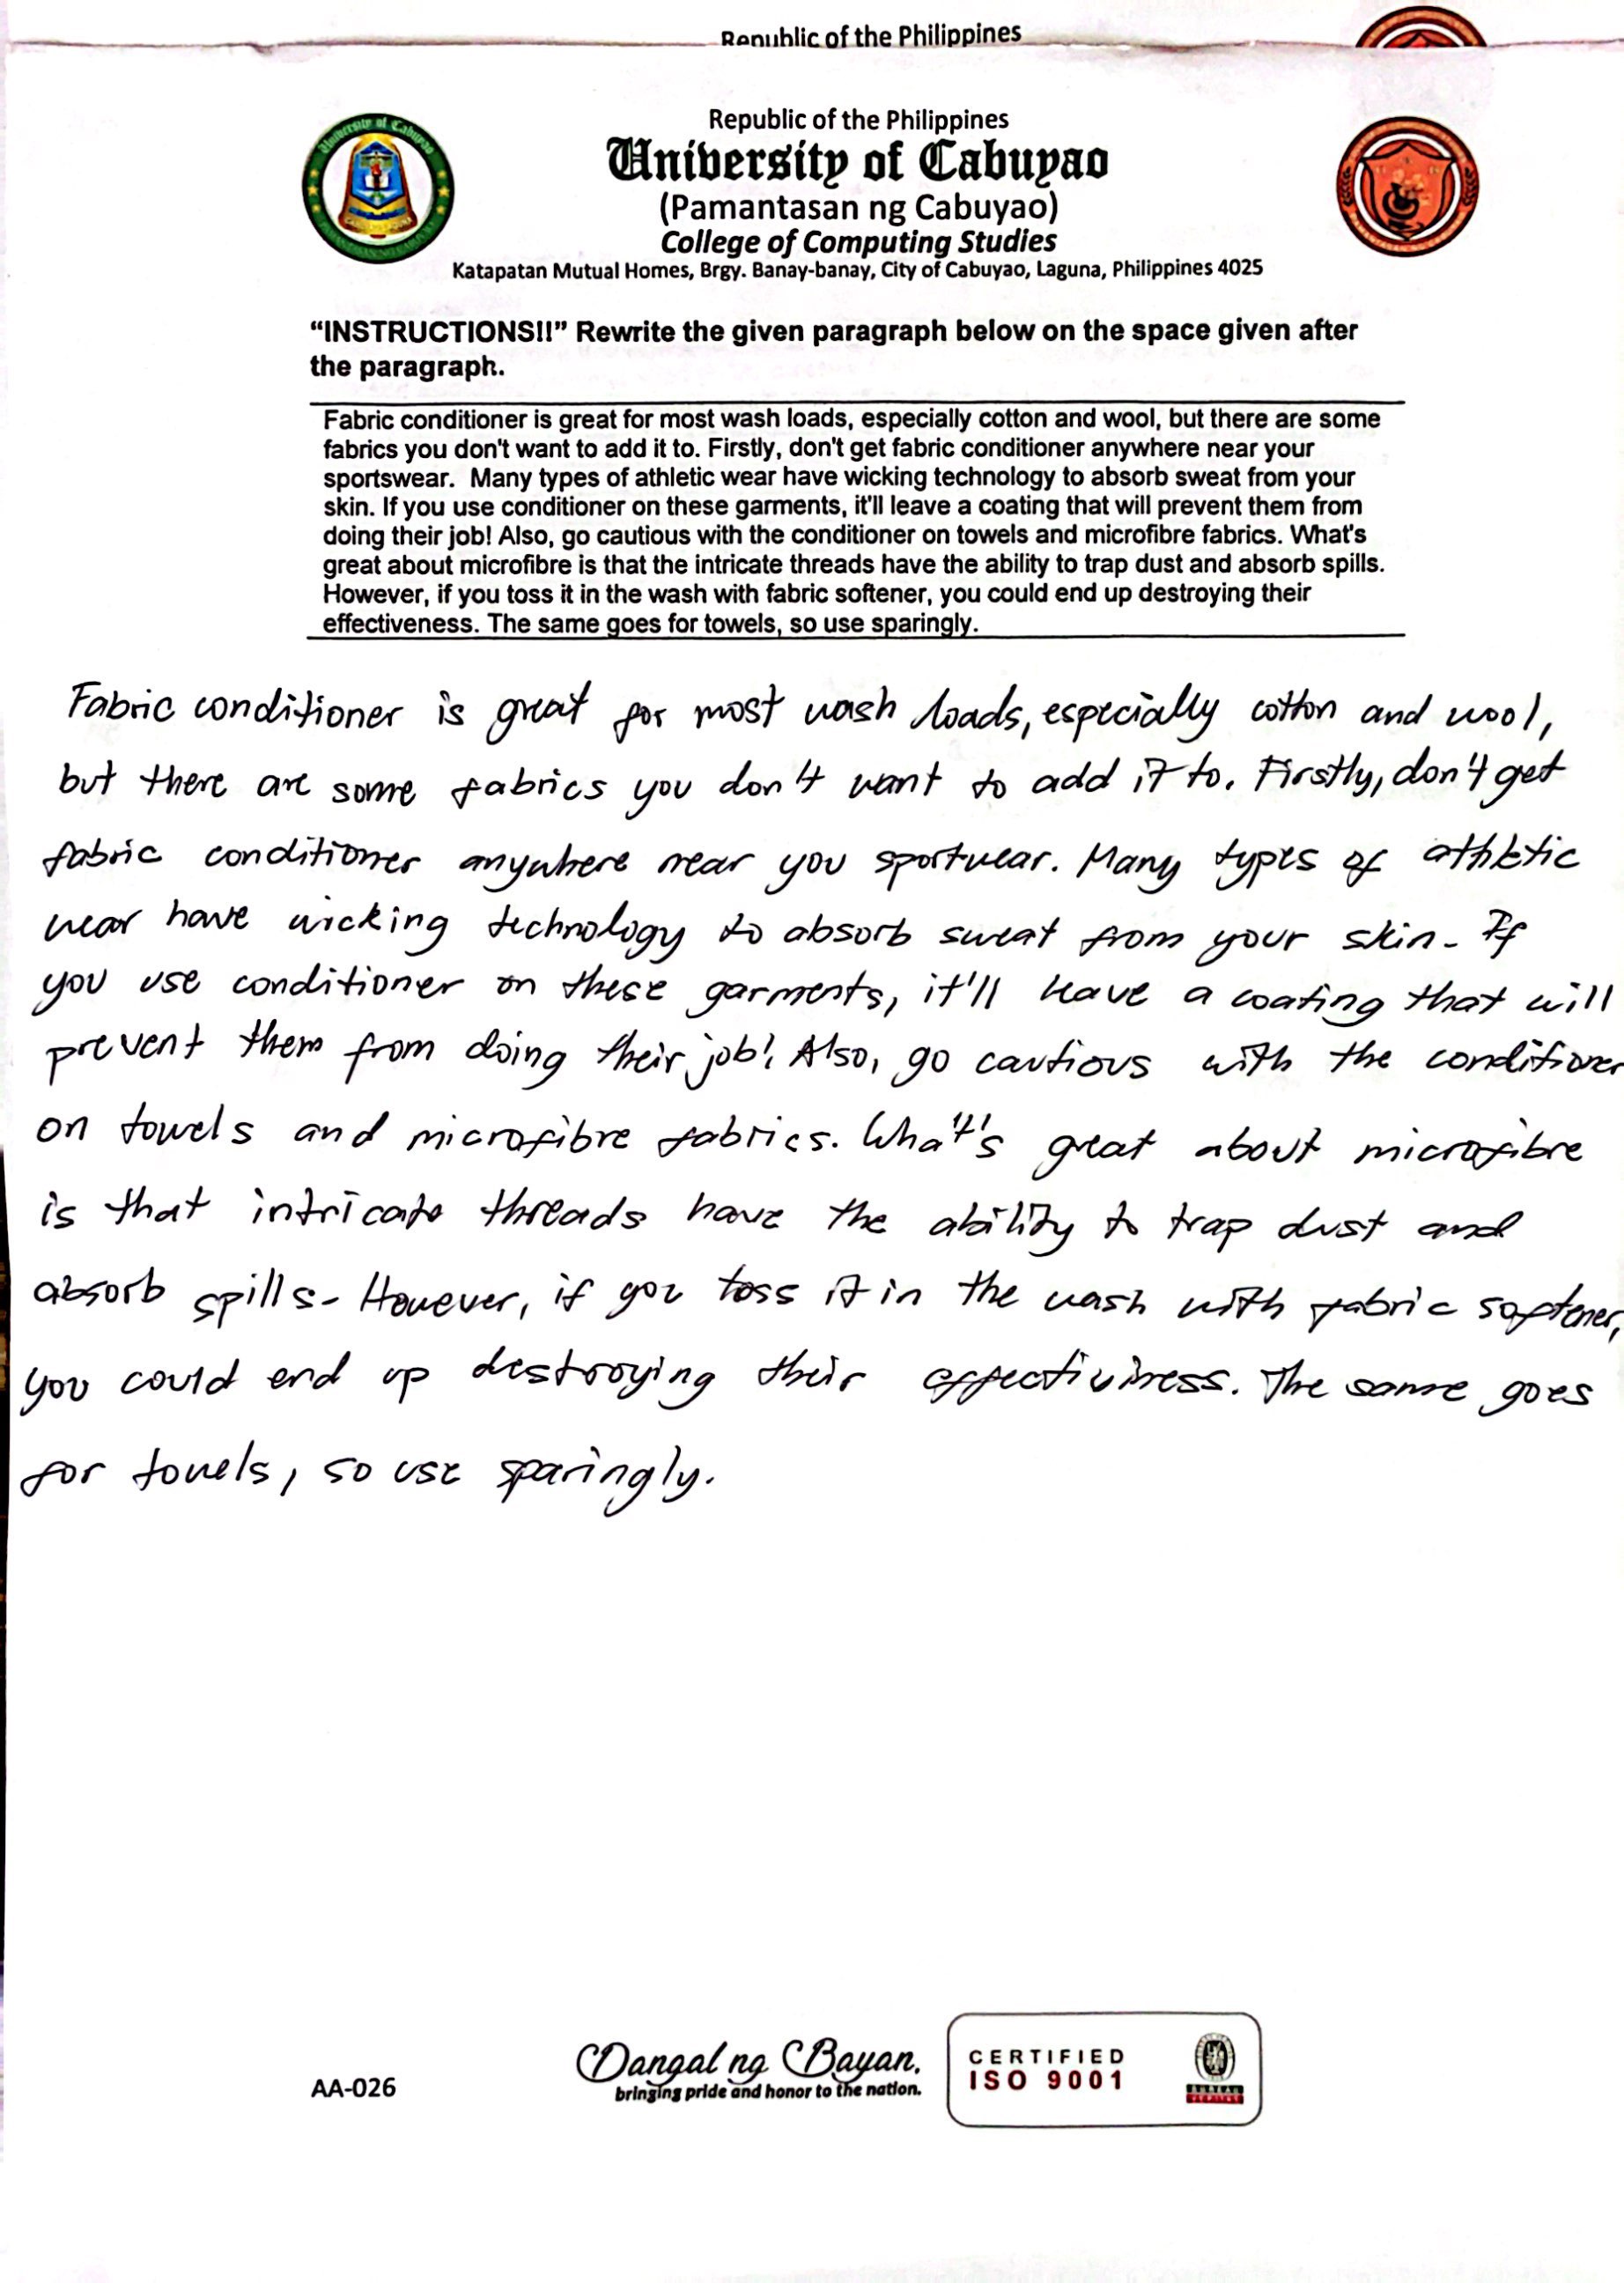 Republic of the Philippines
Republic of the Philippines
University of Cabuyao
(Pamantasan ng Cabuyao)
College of Computing Studies
Katapatan Mutual Homes, Brgy. Banay-banay, City of Cabuyao, Laguna, Philippines 4025
“INSTRUCTIONS!!” Rewrite the given paragraph below on the space given after
the paragraph.
Fabric conditioner is great for most wash loads, especially cotton and wool, but there are some
fabrics you don't want to add it to. Firstly, don't get fabric conditioner anywhere near your
sportswear. Many types of athletic wear have wicking technology to absorb sweat from your
skin. If you use conditioner on these garments, it'll leave a coating that will prevent them from
doing their job! Also, go cautious with the conditioner on towels and microfibre fabrics. What's
great about microfibre is that the intricate threads have the ability to trap dust and absorb spills.
However, if you toss it in the wash with fabric softener, you could end up destroying their
effectiveness. The same goes for towels, so use sparingly.
Fabric conditioner is great for most wash loads, especially cotton and wool,
but there are some fabrics you don't want to add it to. Firstly, don't get
fabric conditioner anywhere near you sportwear. Many types of athletic
wear have wicking technology to absorb sweat from your skin. If
you use conditioner on these garments, it'll leave a coating that will
prevent them from doing their job! Also, go cautious with the conditioner
on towels and microfibre fabrics. What's great about microfibre
is that intricate threads have the ability to trap dust and
absorb spills. However, if you toss it in the wash with fabric softener,
you could end up destroying their effectiviness. The same goes
for towels, so use sparingly.
AA-026
Dangal ng Bayan.
bringing pride and honor to the nation.
CERTIFIED
ISO 9001
BUREAU
VERITAS